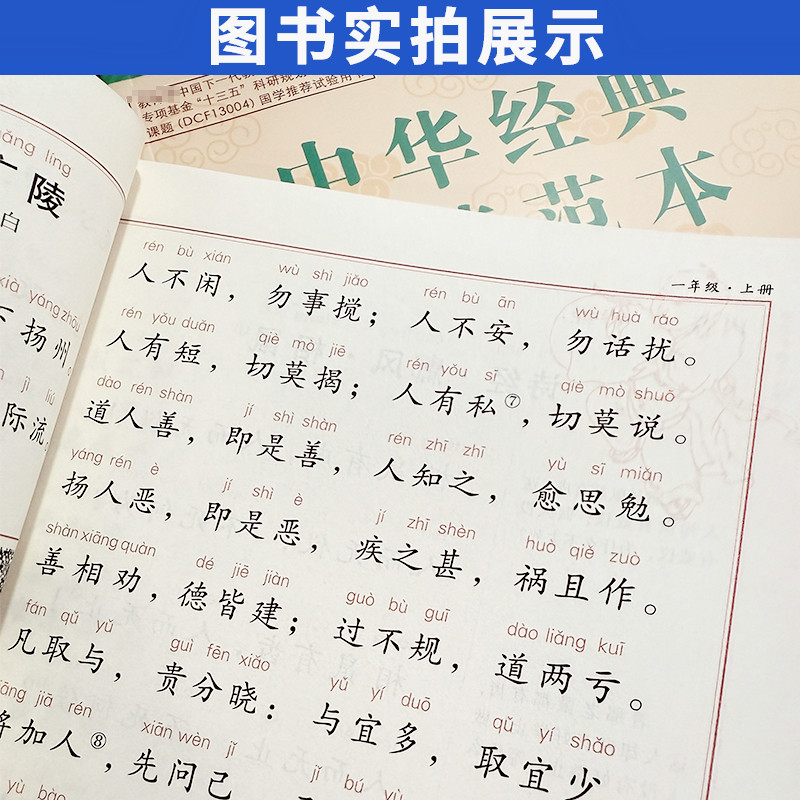 图书实拍展示
中国下一代
专项基金“十三五”科研规划
课题(DCF13004)国学推荐试验用书
中华经典
范本
ǎng líng
广陵
白
xià yáng zhōu
下扬州。
jì liú
际流。
一年级·上册
rén bù xián wù shì jiǎo rén bù ān wù huà rǎo
人不闲，勿事搅；人不安，勿话扰。
rén yǒu duǎn qiè mò jiē rén yǒu sī qiè mò shuō
人有短，切莫揭；人有私⑦，切莫说。
dào rén shàn jí shì shàn rén zhī zhī yù sī miǎn
道人善，即是善，人知之，愈思勉。
yáng rén è jí shì è jí zhī shèn huò qiě zuò
扬人恶，即是恶，疾之甚，祸且作。
shàn xiāng quàn dé jiē jiàn guò bù guī dào liǎng kuī
善相劝，德皆建；过不规，道两亏。
fán qǔ yǔ guì fēn xiǎo yǔ yí duō qǔ yí shǎo
凡取与，贵分晓：与宜多，取宜少
jiāng jiā rén xiān wèn jǐ jǐ bú yù
将加人⑧，先问己
yù bào